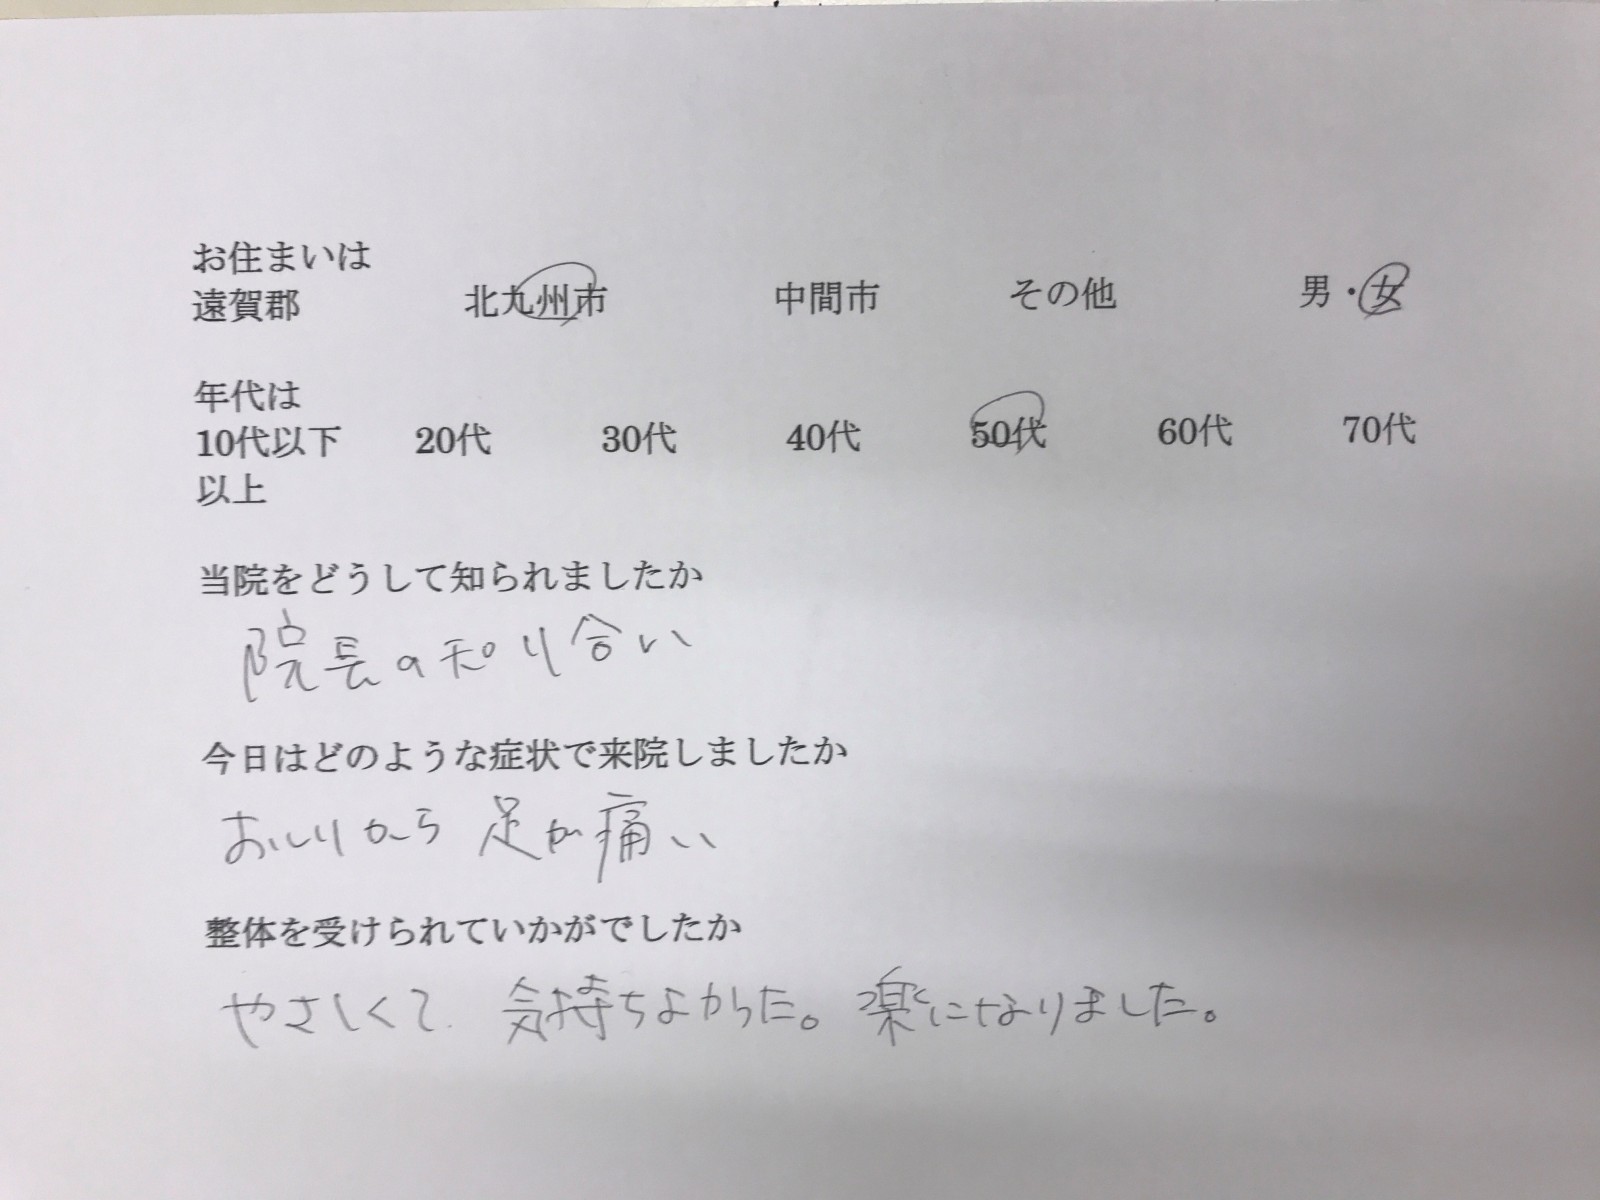 お住まいは
遠賀郡 北九州市 中間市 その他 男・女
年代は
10代以下 20代 30代 40代 50代 60代 70代
以上
当院をどうして知られましたか
院長の知り合い
今日はどのような症状で来院しましたか
おしりから 足が痛い
整体を受けられていかがでしたか
やさしくて 気持ちよかった。楽になりました。